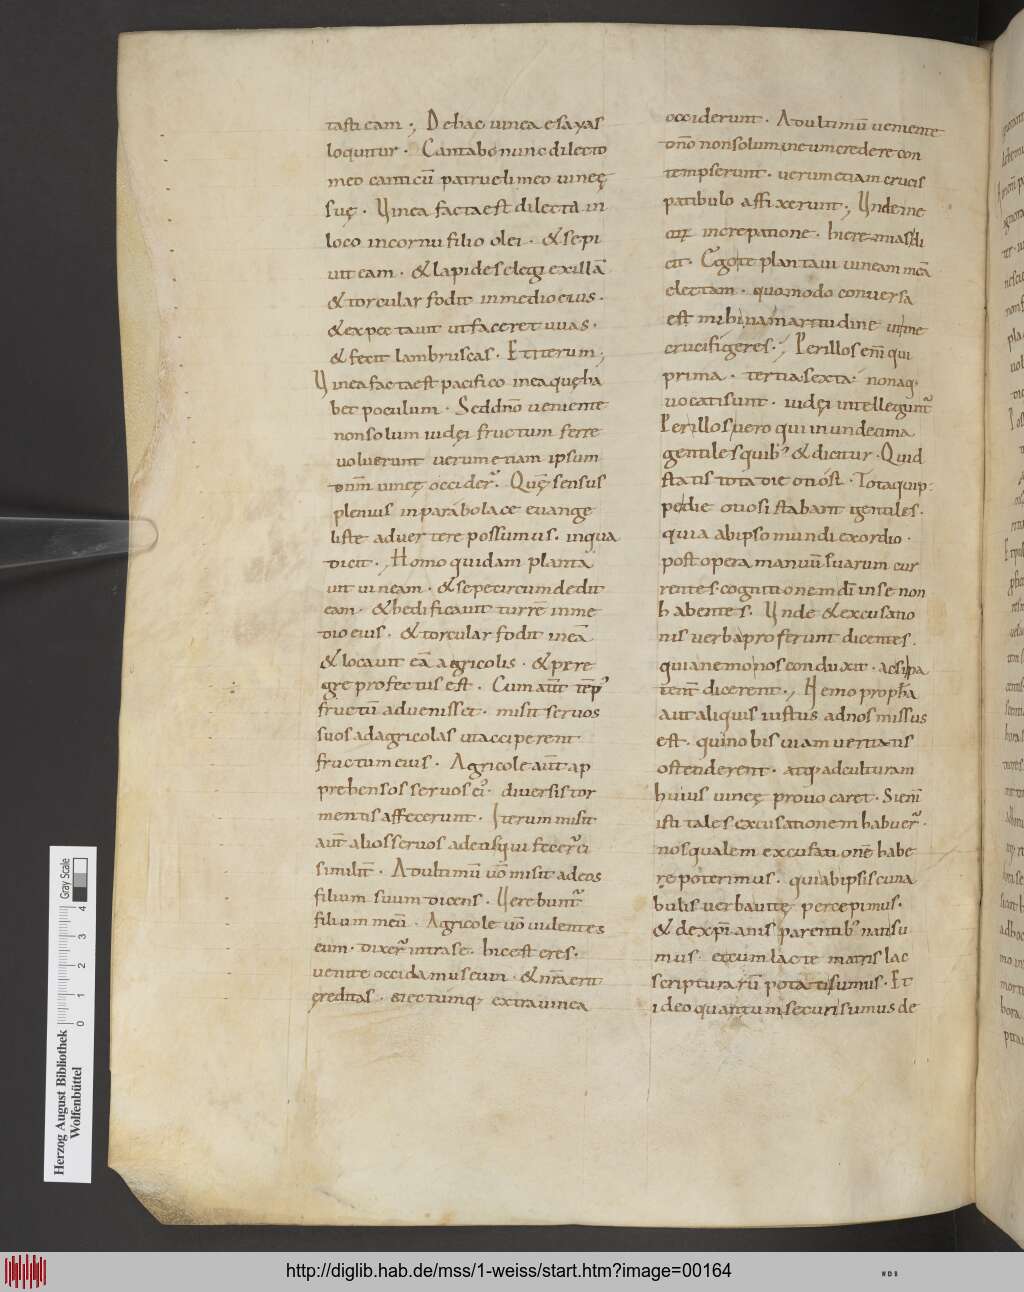 tasti eam· De hac uinea esayas
loquitur· Cantabo nunc dilecto
meo canticū patrueli meo uineę
suę· Uinea facta est dilecta in
loco in cornu filio olei· & sepi
uit eam· & lapides elegi ex illā
& torcular fodit in medio eius·
& expectauit ut faceret uuas·
& fecit lambruscas· Et iterum;
Uinea facta est pacifico in ea quę ha
bet poculum· Sed dn̄o ueniente
non solum iudęi fructum ferre
uoluerunt uerum etiam ipsum
dnm̄ uineę occider̄· Quę sensus
plenius in parabola ce euange
liste aduertere possumus· in qua
dicit· Homo quidam planta
uit uineam· & sepe circumdedit
eam· & hedificauit turrē in me
dio eius· & torcular fodit in eā
& locauit eā agricolis· & pere
gre profectus est· Cum aūt temp̄
fructū aduenisset· misit seruos
suos ad agricolas ut acciperent
fructum eius· Agricole aūt ap
prehensos seruos ei· diuersis tor
mentis affecerunt· Iterum misit
aūt alios seruos ad eos qui fecer̄ ei
similit̄· Ad ultimū uō misit ad eos
filium suum dicens· Uerebunt̄
filium meū· Agricole uō uidentes
eum· dixer̄ intra se· hic est eres·
uenite occidamus eum· & nr̄a erit
ęreditas· eiectumq; extra uinea
occiderunt· Ad ultimū ueniente
dn̄o non solum in eum credere con
tempserunt· uerum etiam crucis
patibulo affixerunt; Unde ine
increpatione· hieremias di
cit· Ego te plantaui uineam meā
electam· quomodo conuersa
est mihi in amaritudine ut me
crucifigeres; Per illos eni qui
prima· tertia· sexta· nonaq·
uocati sunt· iudęi intellegunt̄
Per illos uero qui in undecima
gentiles quib; & dicitur· Quid
statis tota die otiosi· Tota quip
pe die otiosi stabant gentiles·
quia ab ipso mundi exordio·
post opera manuū suarum cur
rentes· cognitionem dī in se non
habentes· Unde & excusatio
nis uerba proferunt dicentes·
quia nemo nos conduxit· ac si pa
tent̄ dicerent; Nemo propha
aut aliquis iustus ad nos missus
est· qui nobis uiam ueritatis
ostenderent· atq; ad culturam
huius uineę prouocaret· Si eni
isti tales excusationem habuer̄·
nos qualem excusationē habe
re poterimus· qui ab ipsis cuna
bulis uerba uitę percepimus·
& de xp̄ianis parentib; nati su
mus· et cum lacte matris lac
scripturarū potati sumus· Et
ideo quantum securi sumus de
Herzog August Bibliothek
Wolfenbüttel
0 1 2 3 4
Gray Scale
http://diglib.hab.de/mss/1-weiss/start.htm?image=00164